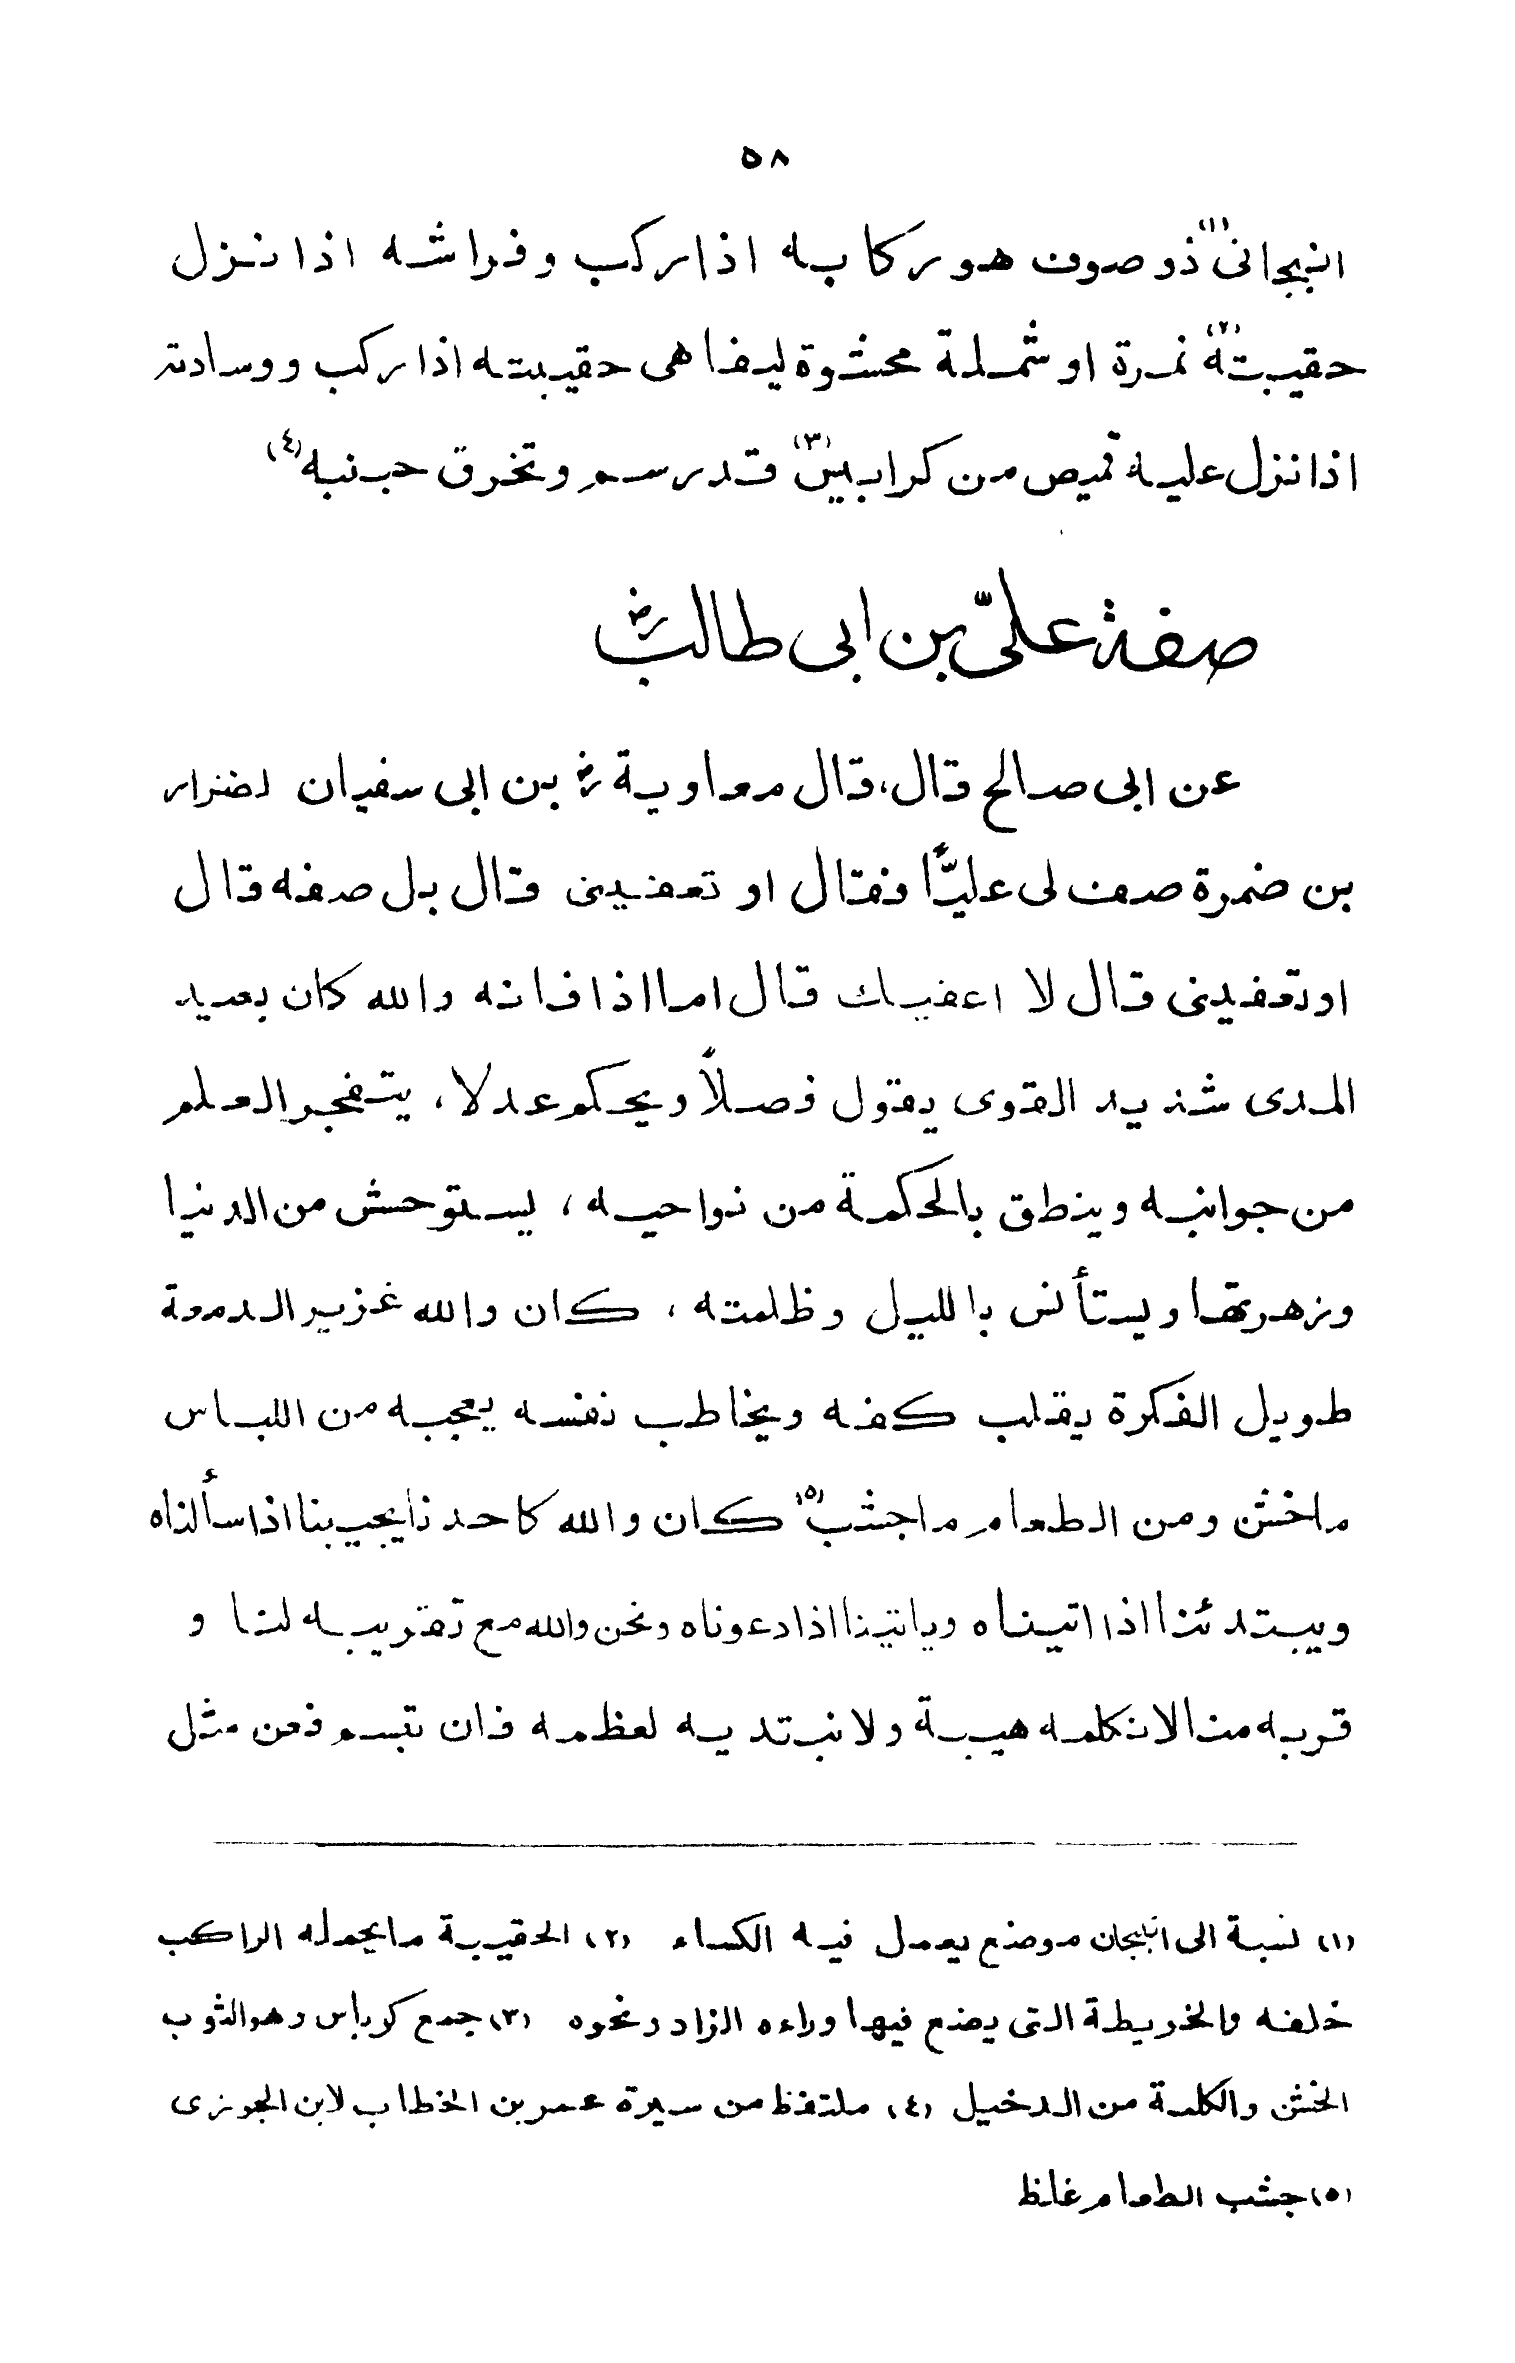 ٥٨
انبجانى(١) ذو صوف هو ركابه اذا ركب وفراشه اذا نزل
حقيبته(٢) نمرة او شملة محشوة ليفا هى حقيبته اذا ركب ووسادته
اذا نزل عليه قميص من كرابيس(٣) قد رسم وتخرق جنبه(٤)
صفة علىّ بن ابى طالبؓ
عن ابى صالح قال، قال معاويةؓ بن ابى سفيان لضرار
بن ضمرة صف لى عليًّا فقال او تعفينى قال بل صفه قال
او تعفينى قال لا اعفيك قال اما اذا فانه والله كان بعيد
المدى شديد القوى يقول فصلاً ويحكم عدلا، يتفجر العلم
من جوانبه وينطق بالحكمة من نواحيه، يستوحش من الدنيا
وزهرتها ويستأنس بالليل وظلمته، كان والله غزير الدمعة
طويل الفكرة يقلب كفه ويخاطب نفسه يعجبه من اللباس
ما خشن ومن الطعام ما جشب(٥) كان والله كاحدنا يجيبنا اذا سألناه
ويبتدئنا اذا اتيناه وياتينا اذا دعوناه ونحن والله مع تقريبه لنا و
قربه منا لا نكلمه هيبة ولا نبتديه لعظمه فان تبسم فعن مثل
(١) نسبة الى انبجان موضع يعمل فيه الكساء (٢) الحقيبة ما يحمله الراكب
خلفه والخريطة التى يضع فيها وراءه الزاد ونحوه (٣) جمع كرباس وهو الثوب
الخشن والكلمة من الدخيل (٤) ملتقط من سيرة عمر بن الخطاب لابن الجوزى
(٥) جشب الطعام غلظ